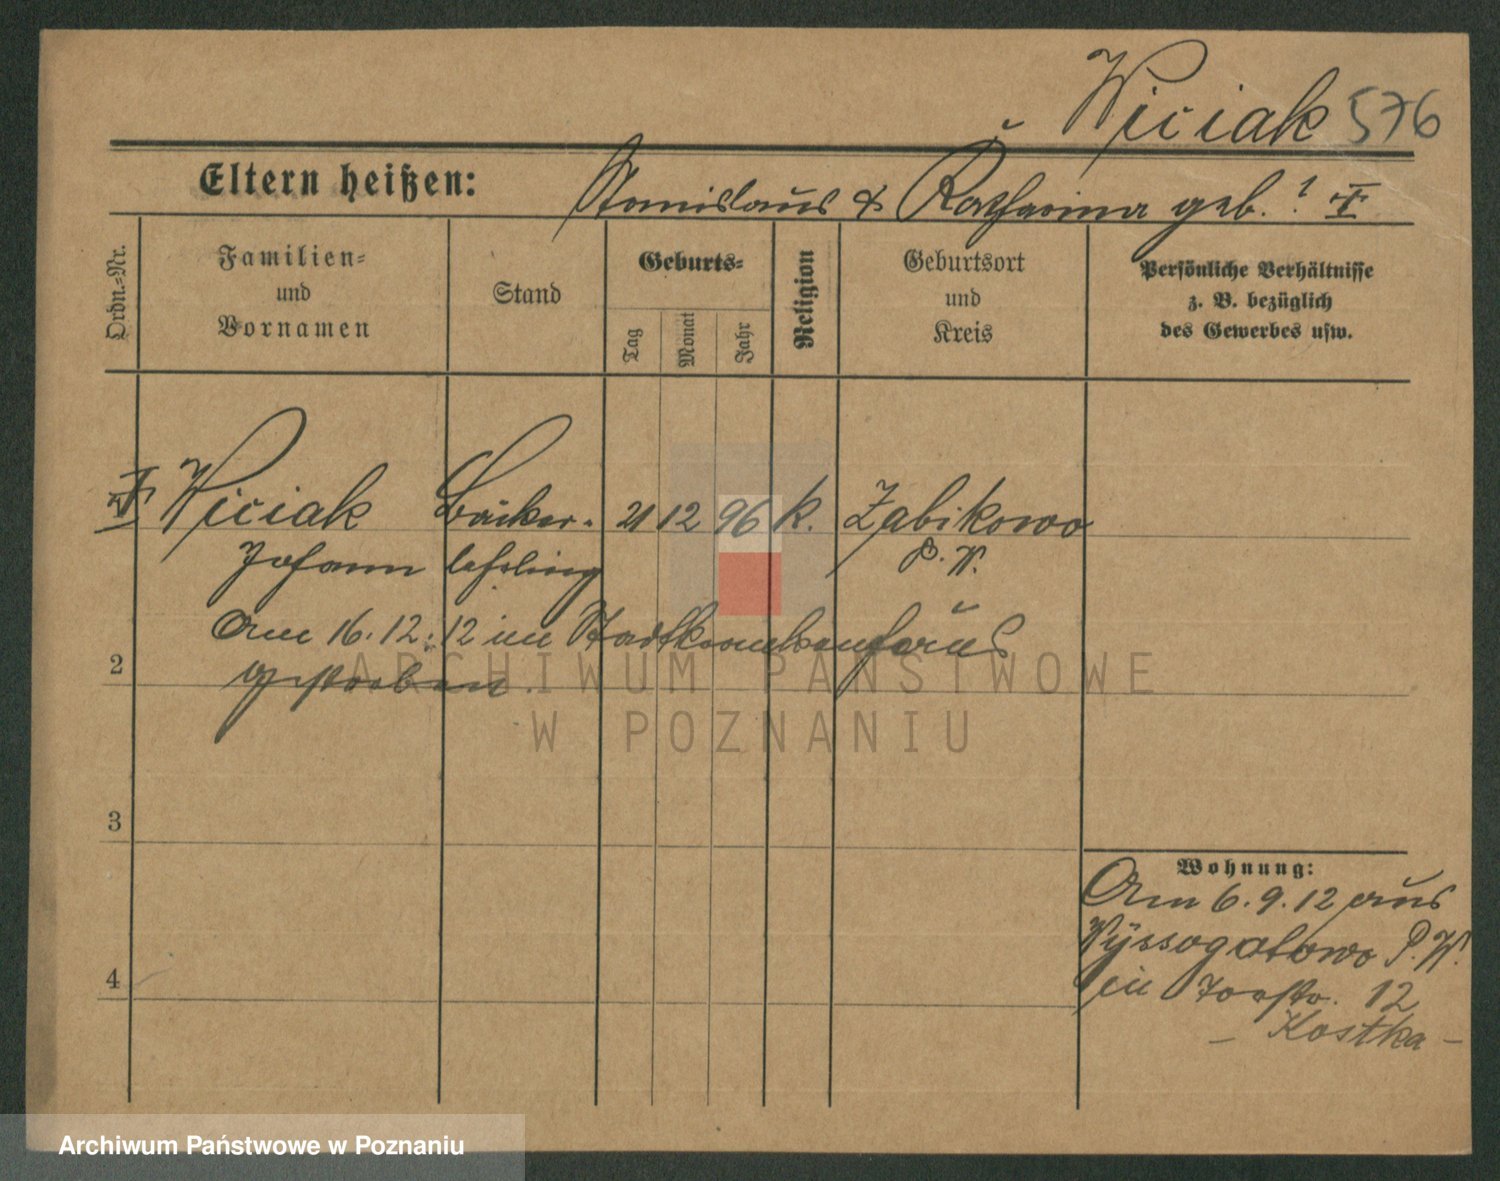 Wiciak 576
Eltern heißen: Stanislaus & Katharina geb. ?
Ordn.-Nr.
Familien-
und
Vornamen
Stand
Geburts-
Tag
Monat
Jahr
Religion
Geburtsort
und
Kreis
Persönliche Verhältnisse
z. B. bezüglich
des Gewerbes usw.
Wiciak Bäcker- 21 12 96 k. Zabikowo
Johann lehrling P. W.
Am 16.12.12 im Stadtkrankenhaus
2 gestorben.
3
4
Wohnung:
Am 6.9.12 aus
Wyssogotowo P. W.
in Torstr. 12
- Kostka -
ARCHIWUM PAŃSTWOWE
W POZNANIU
Archiwum Państwowe w Poznaniu